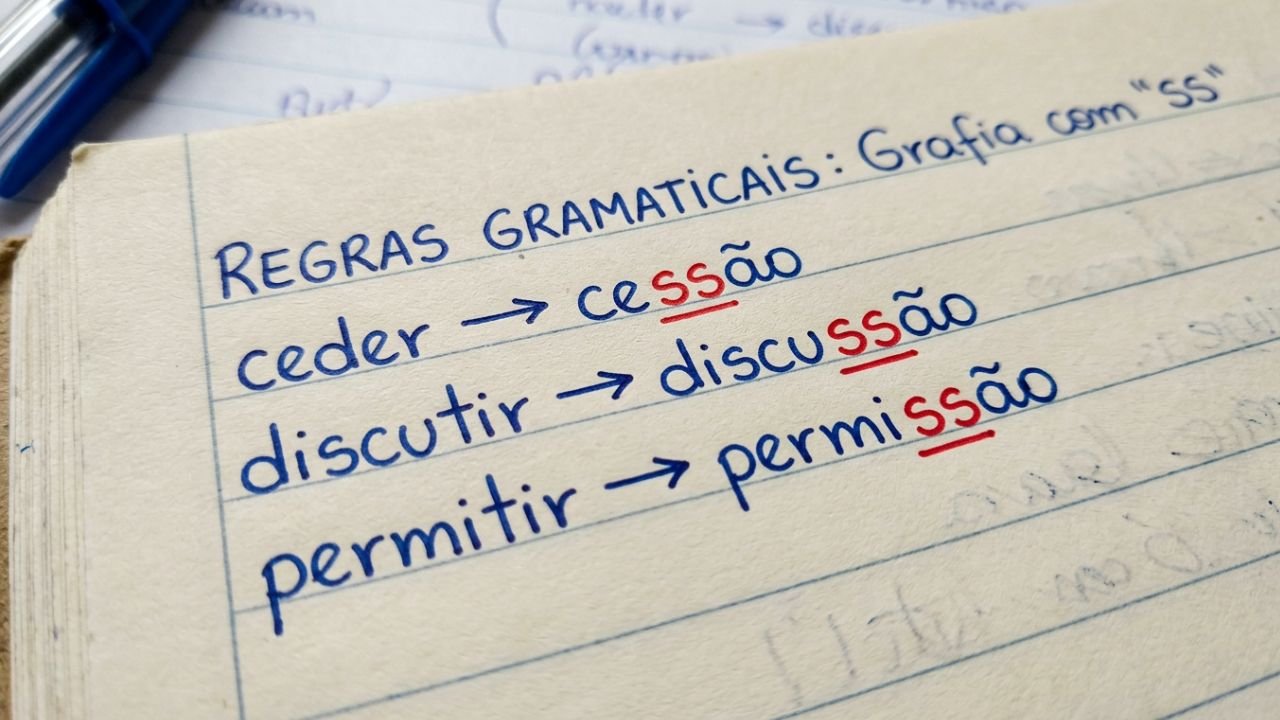 REGRAS GRAMATICAIS: Grafia com "ss"
ceder → cessão
discutir → discussão
permitir → permissão